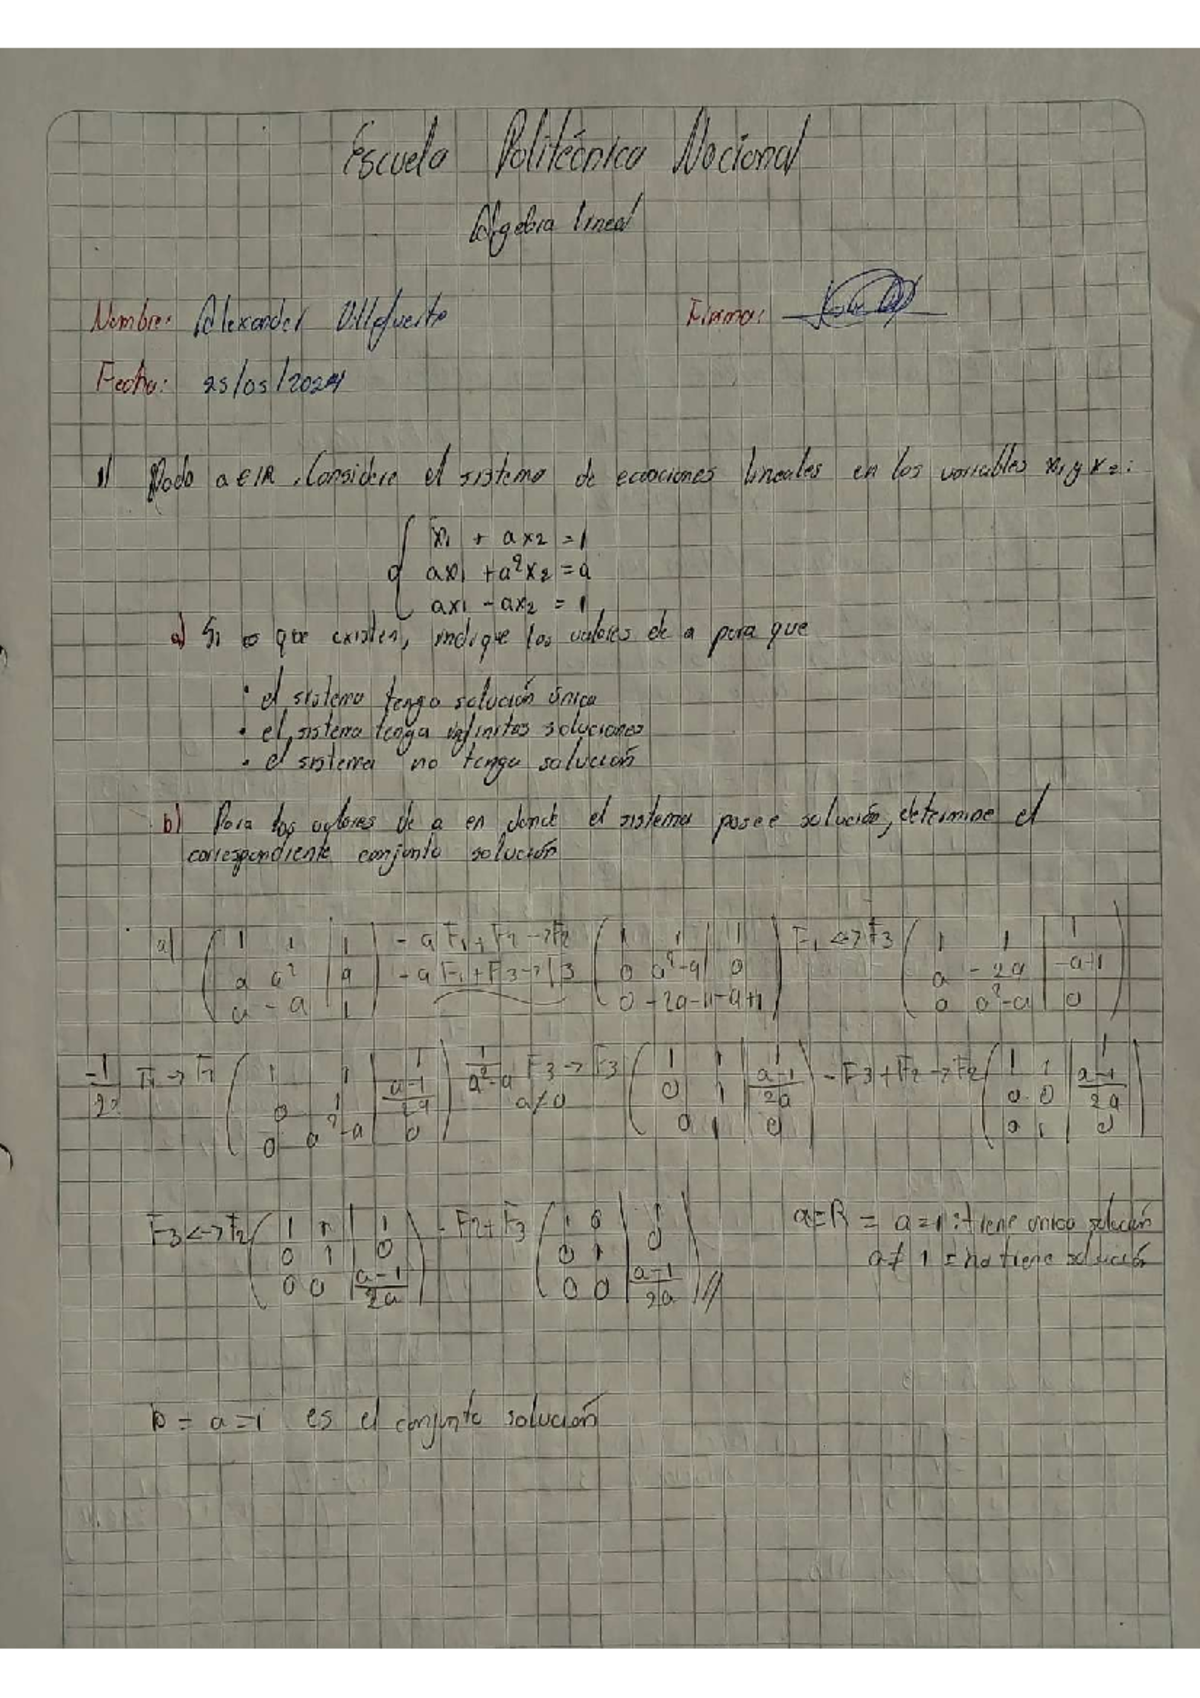 Escuela Politécnica Nacional
Algebra lineal
Nombre: Alexander Villafuerte Firma:
Fecha: 25/05/2024
1) Dado a∈IR. Considere el sistema de ecuaciones lineales en las variables x₁ y x₂:
{ x₁ + ax₂ = 1
ax₁ + a²x₂ = a
ax₁ - ax₂ = 1
a) Si es que existen, indique los valores de a para que
• el sistema tenga solución única
• el sistema tenga infinitas soluciones
• el sistema no tenga solución
b) Para los valores de a en donde el sistema posee solución, determine el
correspondiente conjunto solución
a) ( 1 1 | 1 ) -aF₁+F₂→F₂ ( 1 1 | 1 ) F₁↔F₃ ( 1 1 | 1 )
( a a² | a ) -aF₁+F₃→F₃ ( 0 a²-a | 0 ) ( 0 -2a | -a+1 )
( a -a | 1 ) ( 0 -2a | -a+1 ) ( 0 a²-a | 0 )
-1/2a ( 1 1 | 1 ) 1/a²-a F₃→F₃ ( 1 1 | 1 ) -F₃+F₂→F₂ ( 1 1 | 1 )
( 0 1 | a-1/2a ) a≠0 ( 0 1 | a-1/2a ) ( 0 0 | a-1/2a )
( 0 a²-a | 0 ) ( 0 1 | 0 ) ( 0 1 | 0 )
F₃↔F₂ ( 1 1 | 1 ) -F₂+F₃ ( 1 0 | 1 ) a=R = a=1: tiene unica solución
( 0 1 | 0 ) ( 0 1 | 0 ) a≠1 = no tiene solución
( 0 0 | a-1/2a ) ( 0 0 | a-1/2a ) //
b = a=1 es el conjunto solución